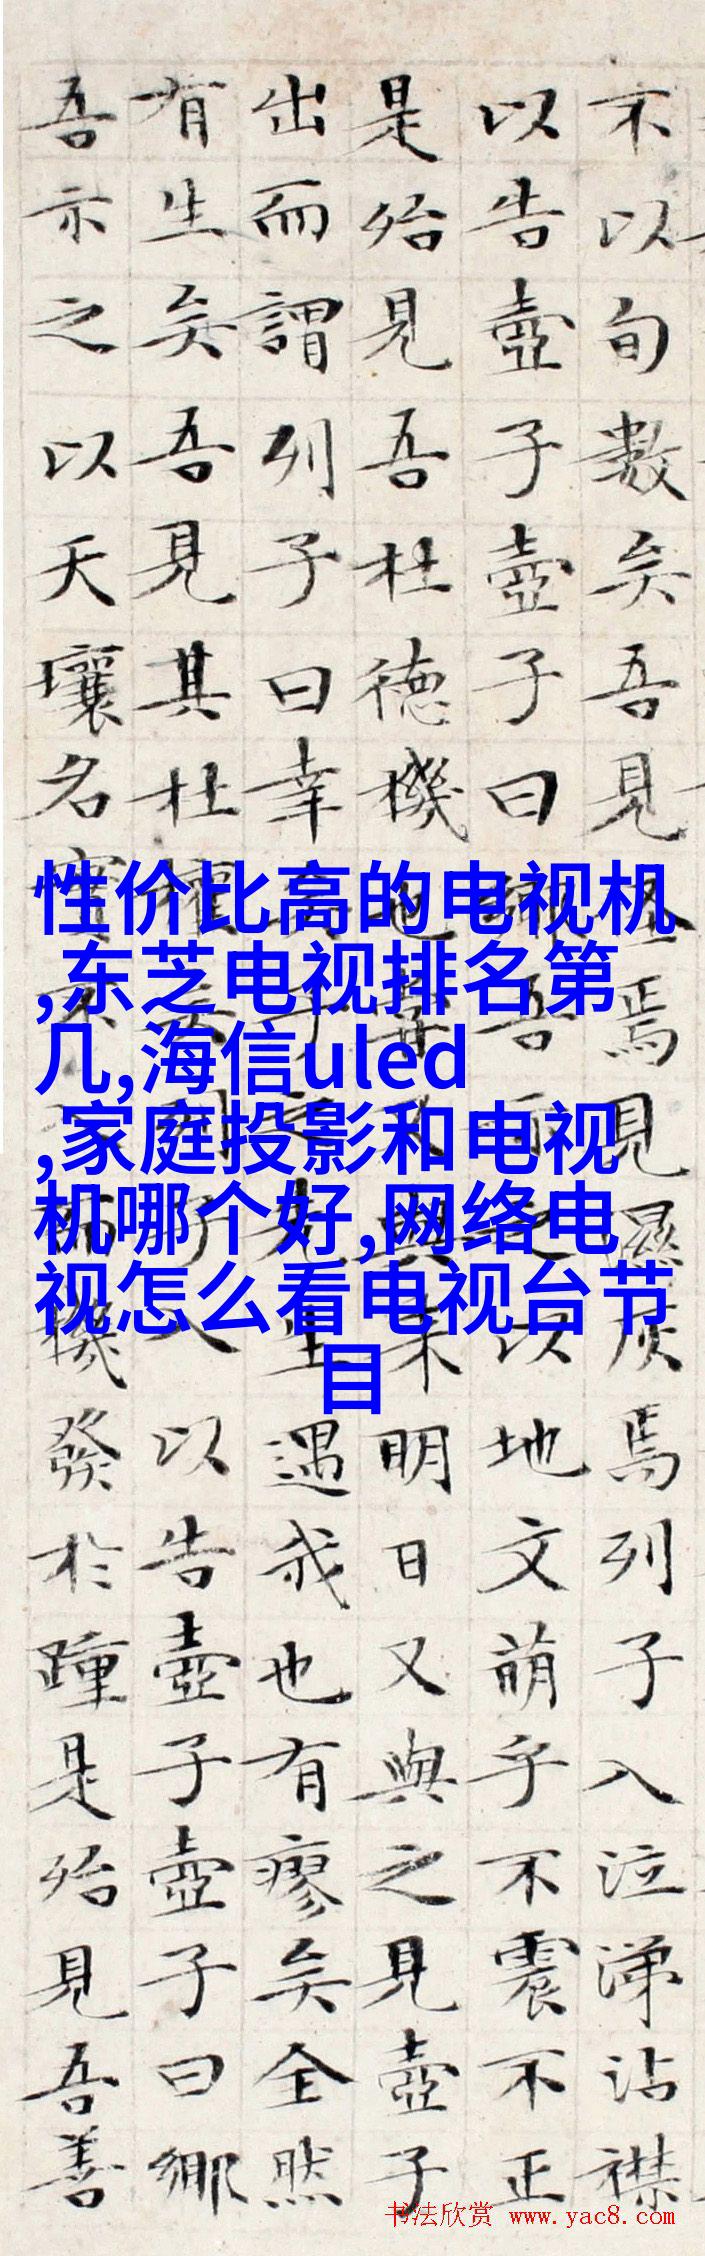 不以旬數矣吾見怪焉見濕灰焉列子入泣涕沾襟
以告壺子壺子曰鄉吾示之以地文萌乎不震不正
是殆見吾杜德機也嘗又與来明日又與之見壺子
出而謂列子曰幸矣子之先生遇我也有瘳矣全然
有生矣吾見其杜權矣列子入以告壺子壺子曰鄉
吾示之以天壤名實不入而機發於踵是殆見吾善
性价比高的电视机
,东芝电视排名第
几,海信uled
,家庭投影和电视
机哪个好,网络电
视怎么看电视台节
目
书法欣赏 www.yac8.com